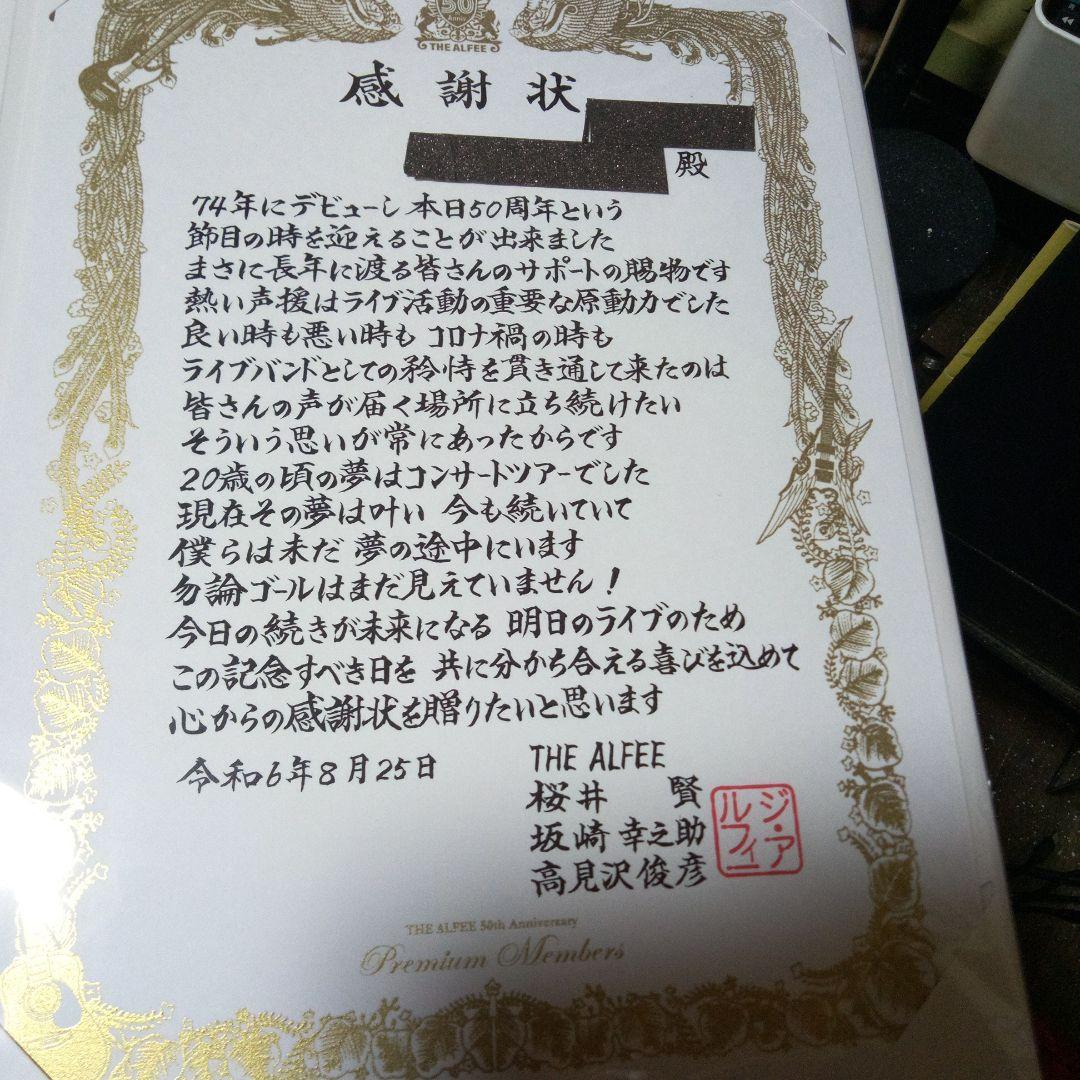 50
THE ALFEE
感謝状
殿
74年にデビューし 本日50周年という
節目の時を迎えることが出来ました
まさに長年に渡る皆さんのサポートの賜物です
熱い声援はライブ活動の重要な原動力でした
良い時も悪い時も コロナ禍の時も
ライブバンドとしての矜恃を貫き通して来たのは
皆さんの声が届く場所に立ち続けたい
そういう思いが常にあったからです
20歳の頃の夢はコンサートツアーでした
現在その夢は叶い 今も続いていて
僕らは未だ 夢の途中にいます
勿論ゴールはまだ見えていません!
今日の続きが未来になる 明日のライブのため
この記念すべき日を 共に分かち合える喜びを込めて
心からの感謝状を贈りたいと思います
令和6年8月25日
THE ALFEE
桜井 賢
坂崎 幸之助
高見沢俊彦
ジ・アルフィー
THE ALFEE 50th Anniversary
Premium Members